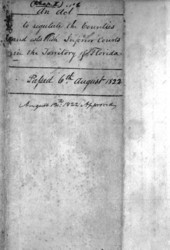 An Act
to regulate the Counties
and establish Inferior Courts
in the Territory of Florida
Passed 6th August 1822
August 12th 1822 Approved